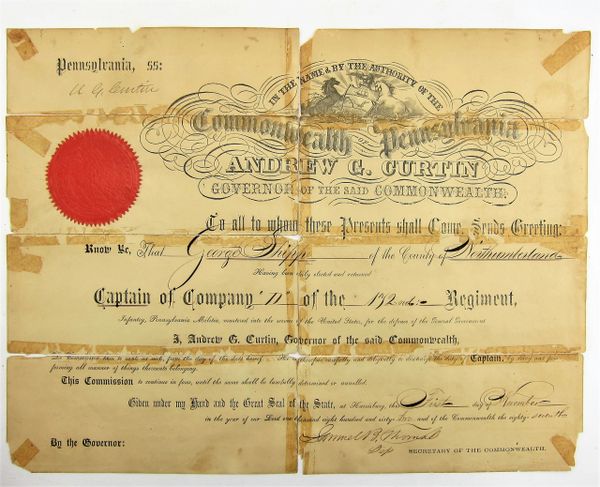 Pennsylvania, ss:
A G Curtin
IN THE NAME & BY THE AUTHORITY OF THE
Commonwealth of Pennsylvania
ANDREW G. CURTIN
GOVERNOR OF THE SAID COMMONWEALTH.
To all to whom these Presents shall Come, Sends Greeting:
Know Ye, That George of the County of Northumberland
Having been duly elected and returned
Captain of Company of the 172nd Regiment,
Infantry, Pennsylvania Militia, mustered into the service of the United States, for the defence of the General Government
I, Andrew G. Curtin, Governor of the said Commonwealth,
from the day of the date hereof. Captain, by
forming all manner of things thereunto belonging.
This Commission to continue in force, until the same shall be lawfully determined or annulled.
Given under my Hand and the Great Seal of the State, at Harrisburg, this First day of November
in the year of our Lord one thousand eight hundred and sixty-Two and of the Commonwealth the eighty-seventh
By the Governor:
Samuel B. Thomas
Dep SECRETARY OF THE COMMONWEALTH.